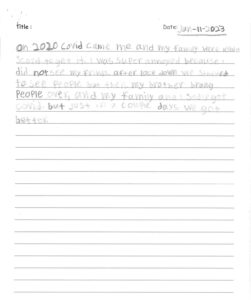 Title:
Date: Jan-11-2023
On 2020 Covid came me and my family were
scard to get it. I was super annoyed because I
did not see my frinds after lock down we started
to see people but then my brother brang
people over, and my family and I got
covid. but just in a couple days we got
better.